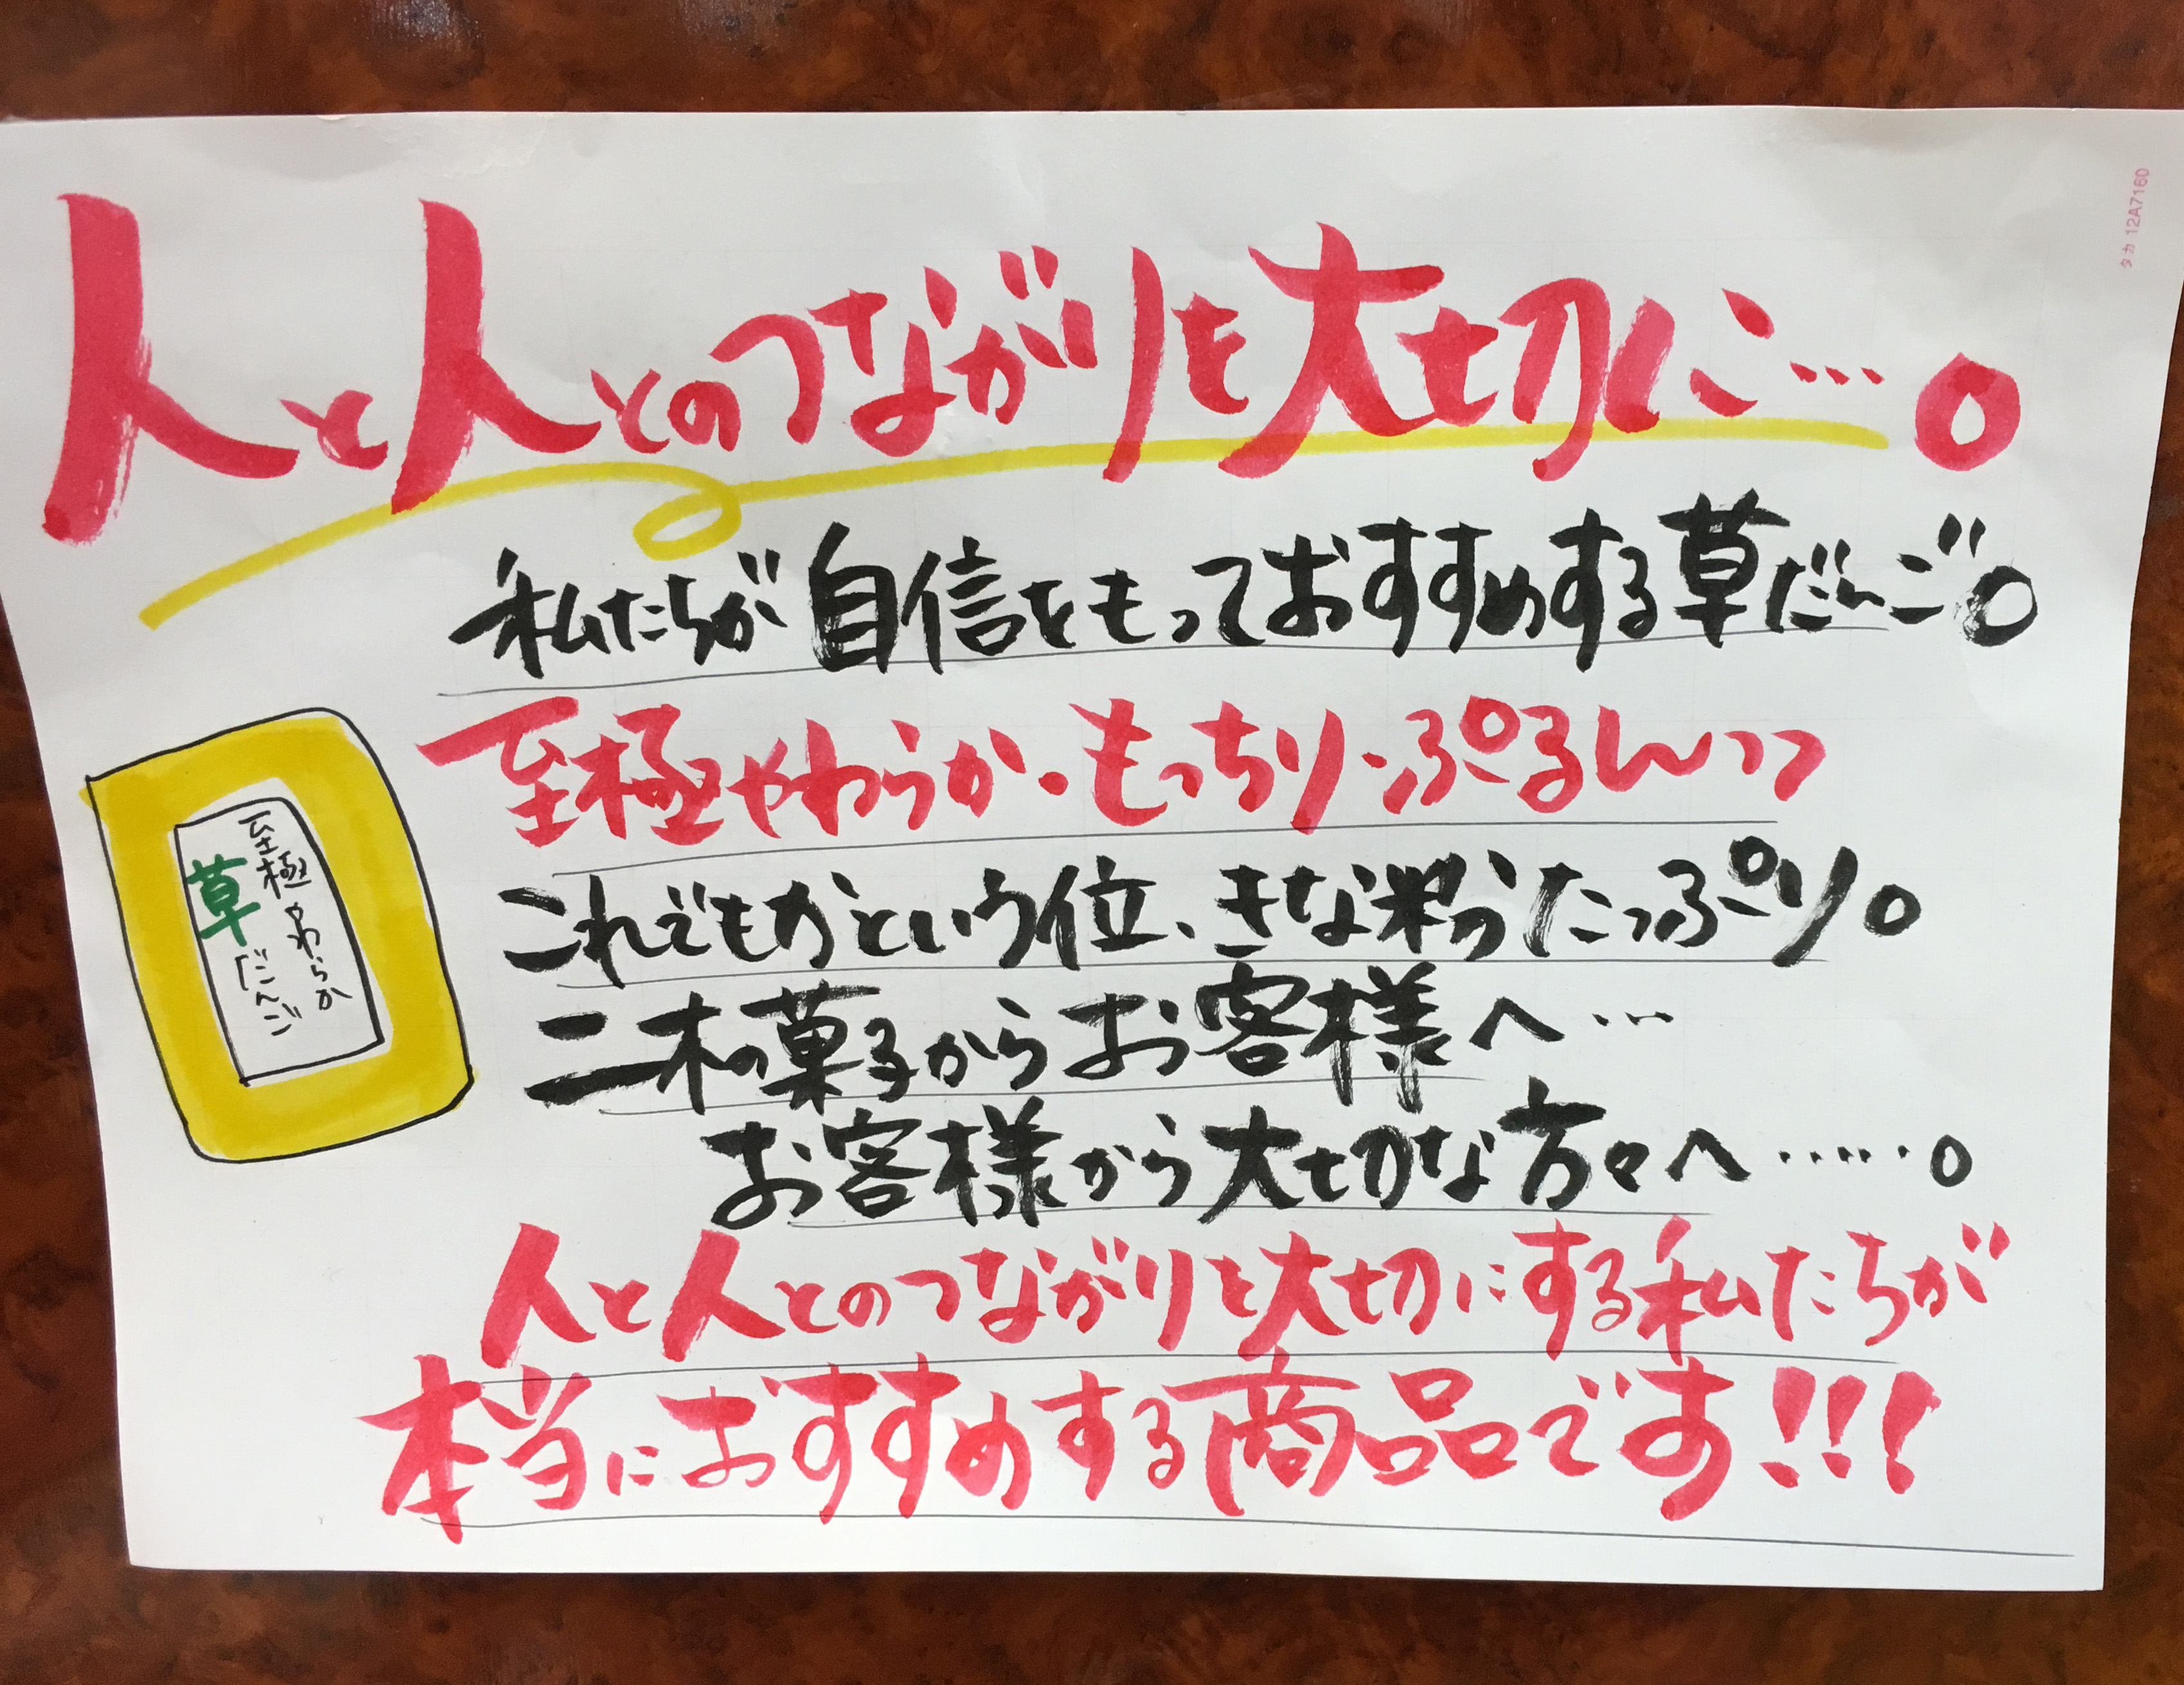 人と人とのつながりを大切に…。
私たちが自信をもっておすすめする草だんご。
至極やわらか・もっちり・ぷるんっっ
これでもかという位、きな粉たっぷり。
二木の菓子からお客様へ…
お客様から大切な方々へ……。
人と人とのつながりを大切にする私たちが
本当におすすめする商品です!!!
至極やわらか
草だんご
タカ 12A7160